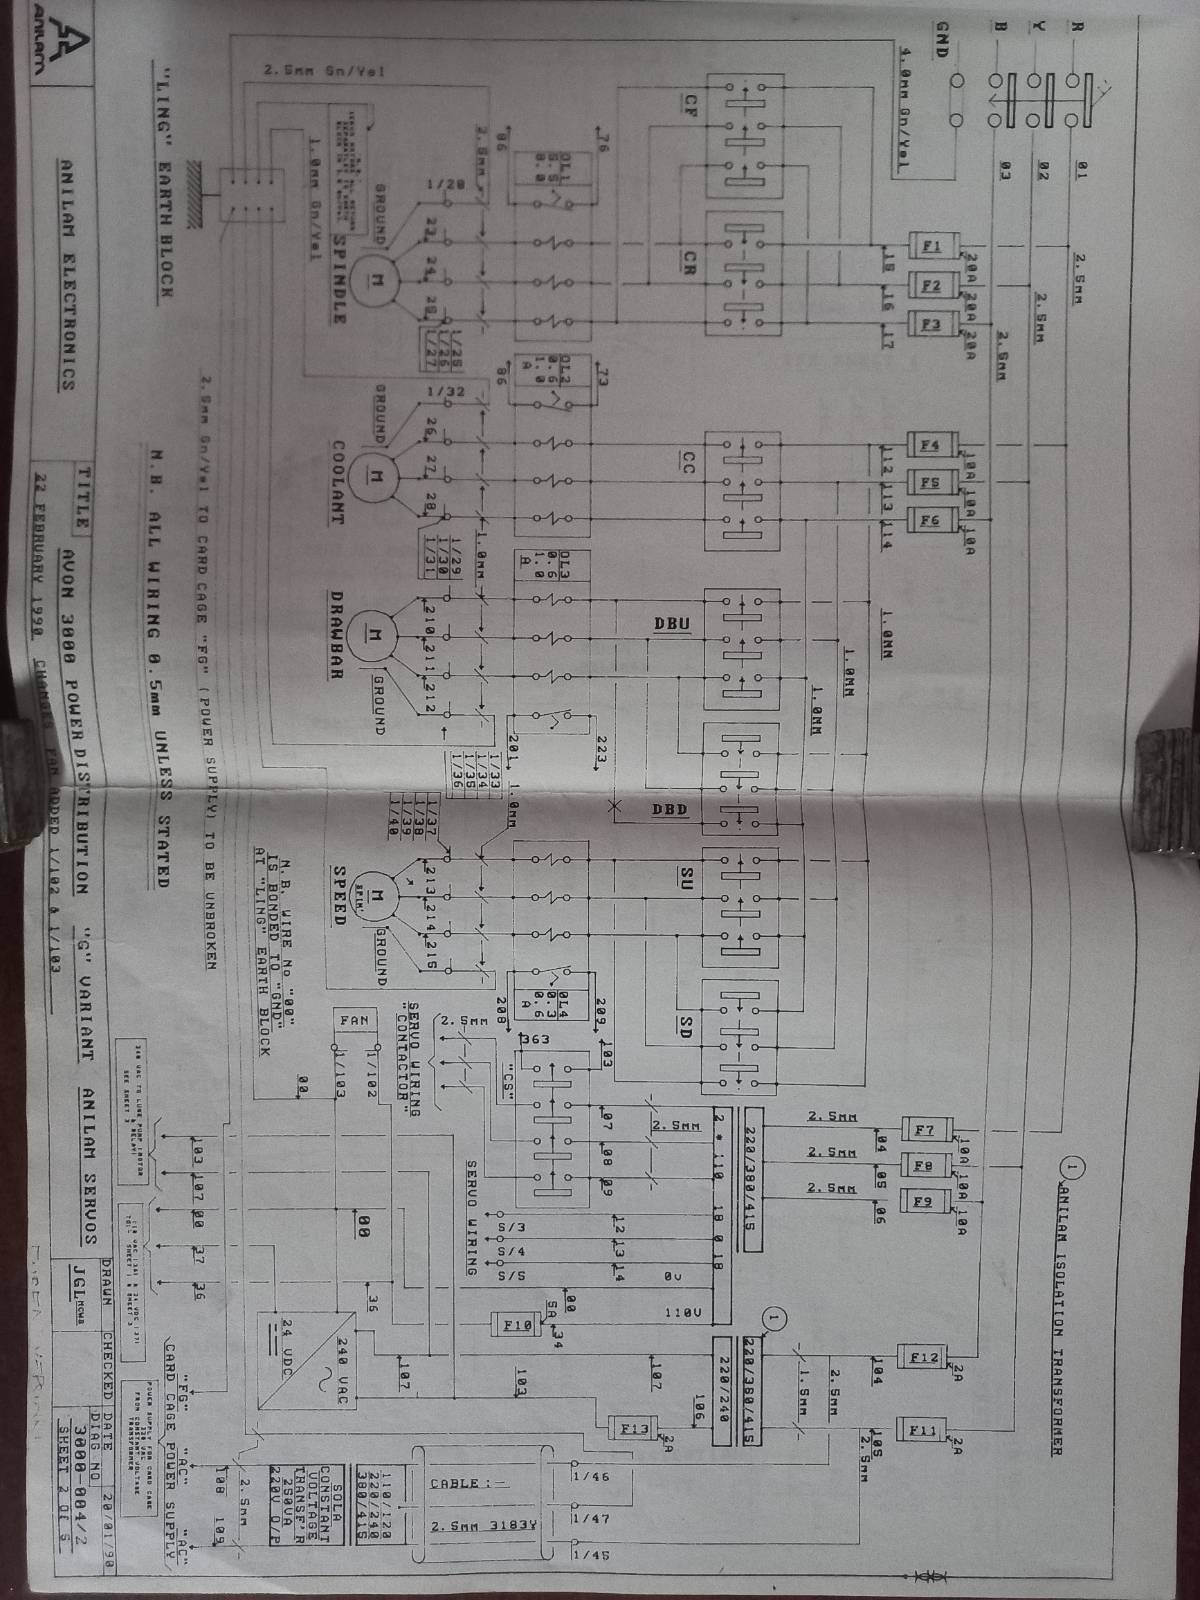 R
Y
B
GND
01
02
03
4.0mm Gn/Yel
2.5mm
2.5mm
2.5mm
F1
F2
F3
20A
20A
20A
15
16
17
F4
F5
F6
10A
10A
10A
112
113
114
1.0MM
1.0MM
1.0MM
CF
CR
CC
DBU
DBD
SU
SD
76
86
OL1
73
86
OL2
0.6
1.0
A
OL3
0.6
1.0
A
201
223
OL4
0.3
0.6
A
208
209
2.5mm Gn/Yel
2.5mm
1.0mm Gn/Yel
1/28
23
24
25
GROUND
M
SPINDLE
1/25
1/26
1/27
1/32
26
27
28
GROUND
M
COOLANT
1/29
1/30
1/31
1.0mm
210
211
212
GROUND
M
DRAWBAR
1/33
1/34
1/35
1/36
1.0mm
1/37
1/38
1/39
1/40
213
214
215
GROUND
M
SPIN'
SPEED
363
103
"CS"
2.5MM
SERVO WIRING
"CONTACTOR"
FAN
1/103
1/102
00
N.B. WIRE No "00"
IS BONDED TO "GND"
AT "LING" EARTH BLOCK
F7
F8
F9
10A
10A
10A
2.5MM
2.5MM
2.5MM
04
05
06
220/380/415
2 * 110
18 0 18
0V
110V
2.5MM
07
08
09
12
13
14
S/3
S/4
S/5
SERVO WIRING
00
34
5A
F10
1
ANILAM ISOLATION TRANSFORMER
1
F12
2A
F11
2A
104
105
2.5MM
1.5MM
2.5MM
220/380/415
220/240
107
106
F13
2A
107
103
36
00
240 VAC
24 VDC
1/46
1/47
1/45
CABLE:-
2.5MM 3183Y
110/120
220/240
380/415
SOLA
CONSTANT
VOLTAGE
TRANSF'R
250VA
220V O/P
2.5MM
108
109
103
107
00
37
36
"FG"
"AC"
"AC"
CARD CAGE POWER SUPPLY
POWER SUPPLY FOR CARD CAGE
220 VAC
FROM CONSTANT VOLTAGE
TRANSFORMER
2.5mm Gn/Yel TO CARD CAGE "FG" (POWER SUPPLY) TO BE UNBROKEN
"LING" EARTH BLOCK
N.B. ALL WIRING 0.5mm UNLESS STATED
ANILAM
ANILAM ELECTRONICS
TITLE
AVON 3000 POWER DISTRIBUTION "G" VARIANT ANILAM SERVOS
22 FEBRUARY 1990 CHANGES FAN ADDED 1/102 & 1/103
DRAWN
JGL
CHECKED
DATE 20/01/90
DIAG NO
3000-004/2
SHEET 2 OF 6